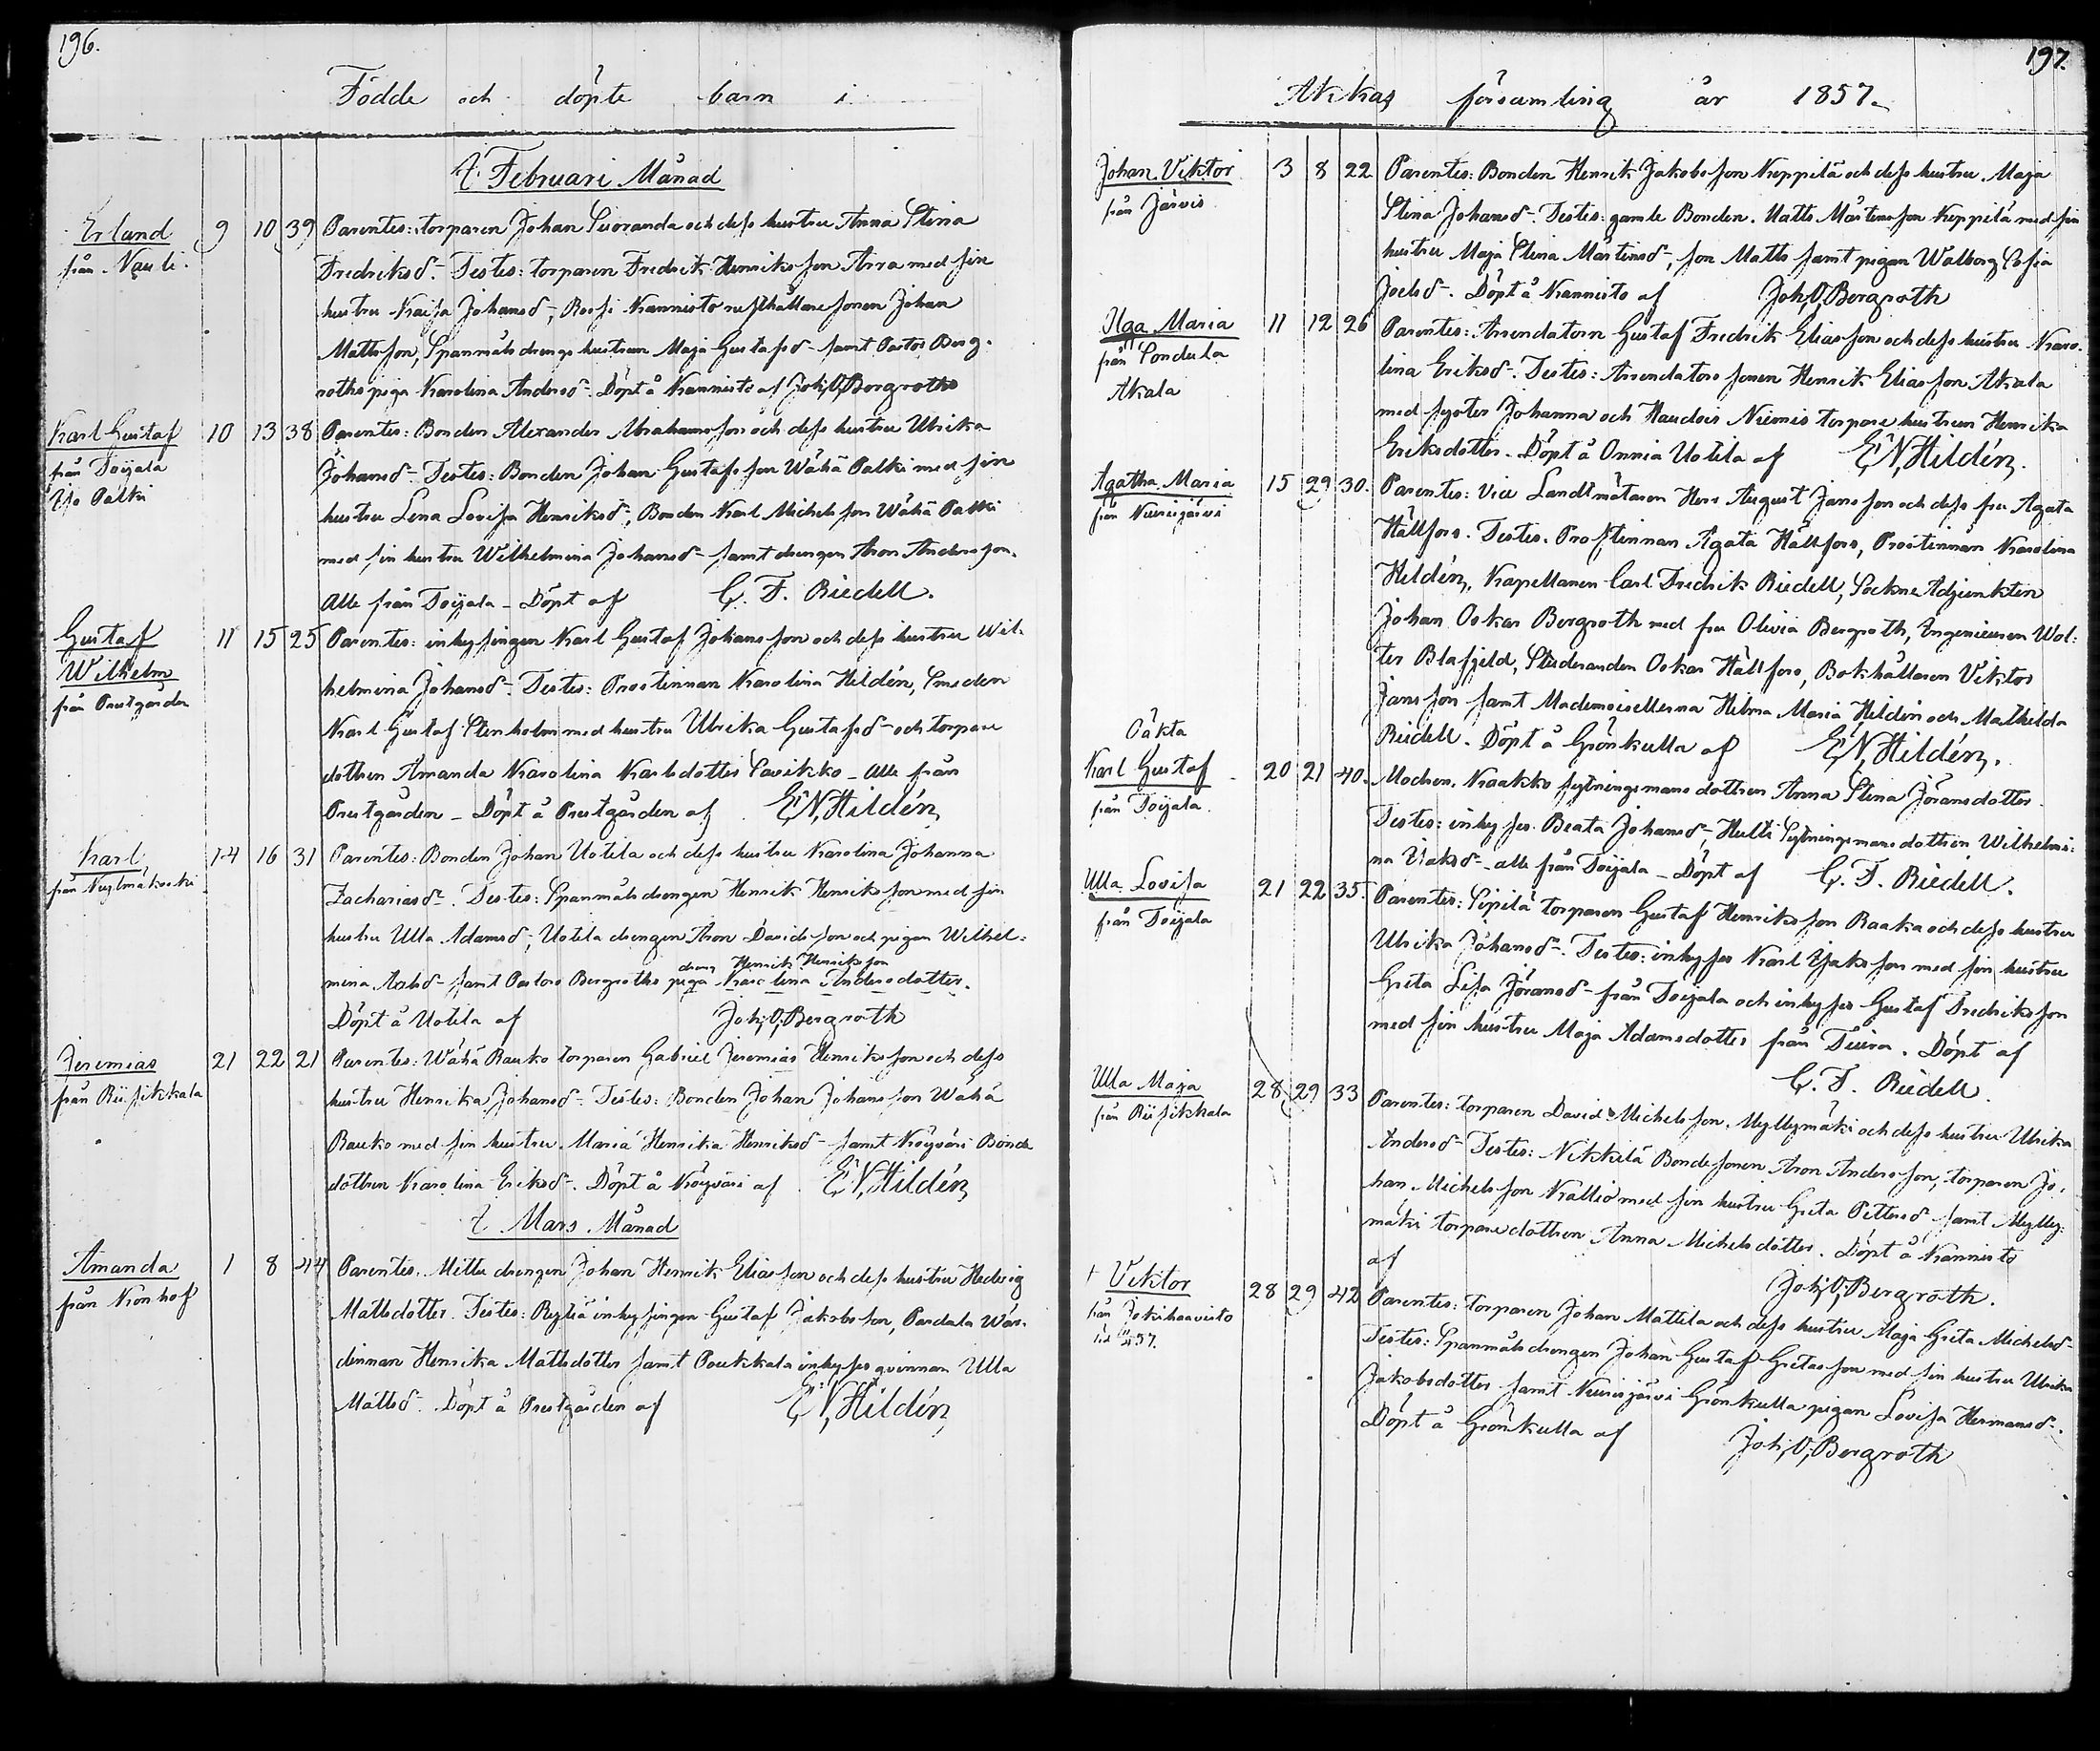 196.
Födde och döpte barn i
i Februari Månad
Erland 9 10 39 Parentes: torparen Johan Suoranda och dess hustru Anna Stina
från Nauli. Fredriksdr. Testes: torparen Fredrik Henriksson Arra med sin
hustru Kaisa Johansdr, Roosi Kannisto rusthållare sonen Johan
Mattsson, Spanmåls drengs hustrun Maja Gustafsdr samt Pastor Berg-
roths piga Karolina Andersdr. Döpt å Kannisto af Joh. O. Bergroth
Karl Gustaf 10 13 38 Parentes: Bonden Alexander Abrahamsson och dess hustru Ulrika
från Toijala Johansdr. Testes: Bonden Johan Gustafsson Wähä Palki med sin
Yso Palki hustru Lena Lovisa Henriksdr, Bonden Karl Michelsson Wähä Palki
med sin hustru Wilhelmina Johansdr samt drengen Aron Andersson.
Alle från Toijala _ Döpt af C. F. Riedell.
Gustaf 11 15 25 Parentes: inhysingen Karl Gustaf Johansson och dess hustru Wil-
Wilhelm helmina Johansdr. Testes: Prostinnan Karolina Hildén, Smeden
från Prestgården Karl Gustaf Stenholm med hustru Ulrika Gustafsdr och torpare
dottren Amanda Karolina Karlsdotter Savikko _ Alle från
Prestgården _ Döpt å Prestgården af E. N. Hildén
Karl 14 16 31 Parentes: Bonden Johan Uotila och dess hustru Karolina Johanna
från Kylmäkoski Zachariasdr. Testes: Spanmåls drengen Henrik Henriksson med sin
hustru Ulla Adamsdr, Uotila drengen Aron Davidsson och pigan Wilhel-
dreng Henrik Henriksson
mina samt Pastors Bergroths piga Karolina Andersdotter.
Döpt å Uotila af Joh. O. Bergroth
Jeremias 21 22 21 Parentes: Wähä Rauko torparen Gabriel Jeremias Henriksson och dess
från Riisikkala hustru Henrika Johansdr. Testes: Bonden Johan Johansson Wähä
Rauko med sin hustru Maria Henrika Henriksdr samt Köyväri Bonde
dottren Karolina Eriksdr. Döpt å Köyväri af E. N. Hildén
i Mars Månad
Amanda 1 8 44 Parentes. Mittu drengen Johan Henrik Eliasson och dess hustru Hedvig
från Kronhof Mattsdotter. Testes: inhysingen Gustaf Jakobsson, Pardala Wär-
dinnan Henrika Mattsdotter samt Poukkala inhyses qvinnan Ulla
Mattsdr. Döpt å Prestgården af E. N. Hildén
197.
Akkas församling år 1857.
Johan Viktor 3 8 22 Parentes: Bonden Henrik Jakobsson Keppilä och dess hustru Maja
från Järvis Stina Johansdr. Testes: gamle Bonden Matts Mårtensson Keppilä med sin
hustru Maja Stina Mårtinsdr, son Matts samt pigan Walborg Sofia
Joelsdr. Döpt å Kannisto af Joh. O. Bergroth
Olga Maria 11 12 26 Parentes: Arrendatorn Gustaf Fredrik Eliasson och dess hustru Karo-
från Sondula lina Eriksdr. Testes: Arrendators sonen Henrik Eliasson Akala
Akala med syster Johanna och Haudois Niemis torpare hustrun Henrika
Eriksdotter. Döpt å Onnia Uotila af E. N. Hildén.
Agatha Maria 15 29 30. Parentes: Vice Landtmätaren Herr August Jansson och dess fru Agata
från Kurisjärvi Hällfors. Testes. Prostinnan Agata Hällfors, Prostinnan Karolina
Heldén, Kapellanen Carl Fredrik Riedell, Sockne Adjunkten
Johan Oskar Bergroth med fru Olivia Bergroth, Ingenieuren Wol-
ter Blafjeld, Studeranden Oskar Hällfors, Bokhållaren Viktor
Jansson samt Mademoisellerna Hilma Maria Hildén och Mathilda
Riedell. Döpt å Grönkulla af E. N. Hildén.
Oäkta
Karl Gustaf 20 21 40. Modren. Kraakko sytningsmans dottren Anna Stina Jöransdotter
från Toijala. Testes: inhyses Beata Johansdr, Hulti Sytningsmans dottren Wilhelmi-
na Isaksdr _ alle från Toijala _ Döpt af C. F. Riedell.
Ulla Lovisa 21 22 35. Parentes: Sipilä torparen Gustaf Henriksson Raaka och dess hustru
från Toijala Ulrika Johansdr. Testes: inhyses Karl Isaksson med sin hustru
Greta Lisa Jöransdr från Toijala och inhyses Gustaf Fredriksson
med sin hustru Maja Adamsdotter från Tiura. Döpt af
C. F. Riedell.
Ulla Maja 28 29 33 Parentes: torparen David Michelsson Myllymäki och dess hustru Ulrika
från Riisikkala Andersdr. Testes: Nikkilä Bonde sonen Aron Andersson, torparen Jo-
han Michelsson Kallio med sin hustru Greta Pettersdr samt Mylly-
mäki torpare dottren Anna Michelsdotter. Döpt å Kannisto
af Joh. O. Bergroth.
† Viktor 28 29 42 Parentes: torparen Johan Mattila och dess hustru Maja Greta Michelsdr
från Jokihaavisto Testes: Spanmåls drengen Johan Gustaf Gretasson med sin hustru Ulrika
57. Jakobsdotter samt Kurisjärvi Grönkulla pigan Lovisa Hermansdr.
Döpt å Grönkulla af Joh. O. Bergroth